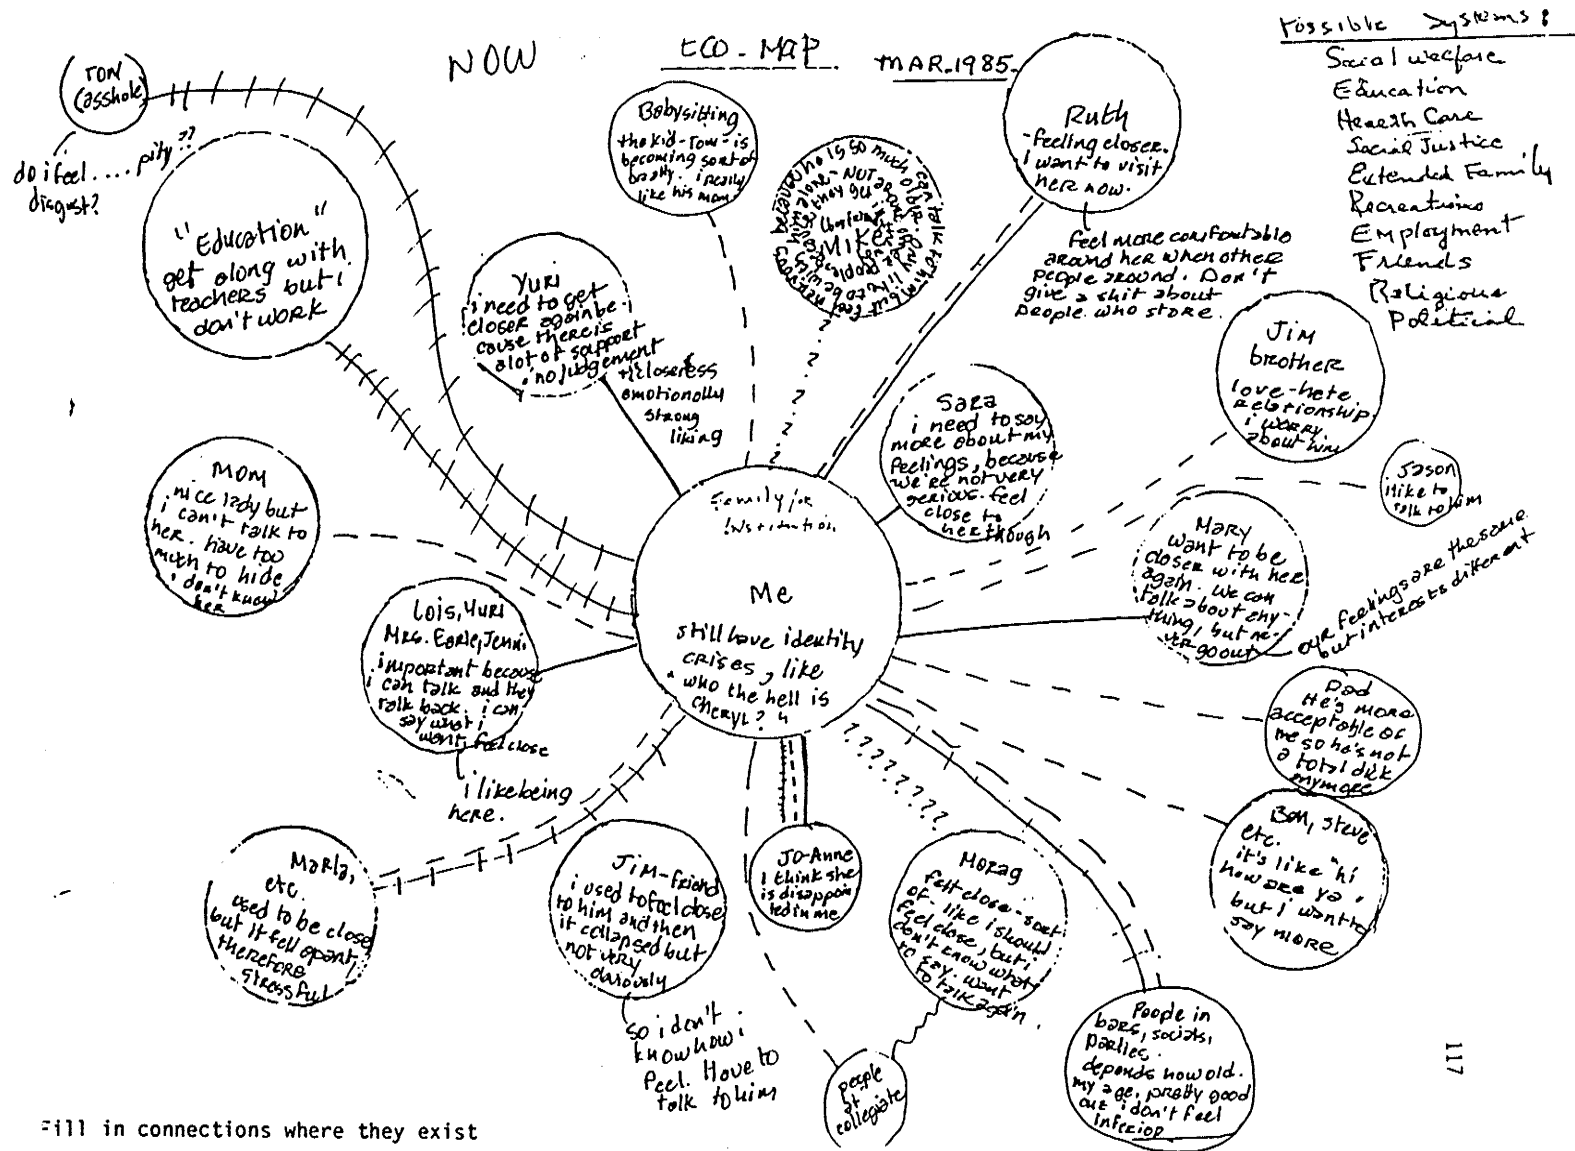 NOW
ECO-MAP
MAR.1985.
Possible Systems:
Social welfare
Education
Health Care
Social Justice
Extended Family
Recreations
Employment
Friends
Religious
Political
RON
(asshole)
do i feel.... pity??
disgust?
"Education"
get along with
teachers but i
don't work
Yuri
i need to get
closer again be-
cause there is
alot of support
no judgement
closeness
emotionally
strong
liking
Babysitting
the kid-Tow-is
becoming sort of
bratty. i really
like his mom
MIKE
Ruth
-feeling closer.
I want to visit
her now.
feel more comfortable
around her when other
people around. Don't
give a shit about
people who stare.
Jim
brother
love-hate
relationship.
i worry
about him
Jason
i like to
talk to him
Sara
i need to say
more about my
feelings, because
we're not very
serious. feel
close to
her though
MOM
nice lady but
i can't talk to
her. have too
much to hide
. don't know
her
Family or
Institution
Me
still have identity
crises, like
"who the hell is
Cheryl?"
Mary
want to be
closer with her
again. We can
talk about any-
thing, but ne-
ver go out
our feelings are the same
but interests different
Lois, Yuri
Mrs. Earle, Jenni.
important because
i can talk and they
talk back. i can
say what i
want, feel close
i like being
here.
Dad
He's more
acceptable of
me so he's not
a total dick
anymore
Steve
etc.
it's like "hi
how are ya,
but i want to
say more
Marla,
etc.
used to be close
but it fell apart,
therefore
stressful
Jim-friend
i used to feel close
to him and then
it collapsed but
not very
obviously
so i don't
know how i
feel. Have to
talk to him
Jo-Anne
I think she
is disappoin
ted in me
???????
Morag
felt close-sort
of-like i should
feel close, but i
don't know what
to say. want
to talk again.
people
at
collegiate
People in
bars, socials,
parties.
depends how old.
my age, pretty good
but i don't feel
inferior
117
Fill in connections where they exist